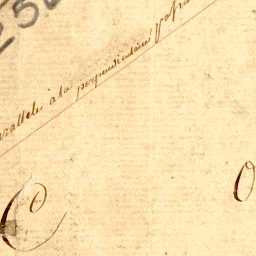 25
arallele à la perpendiculaire
C
O